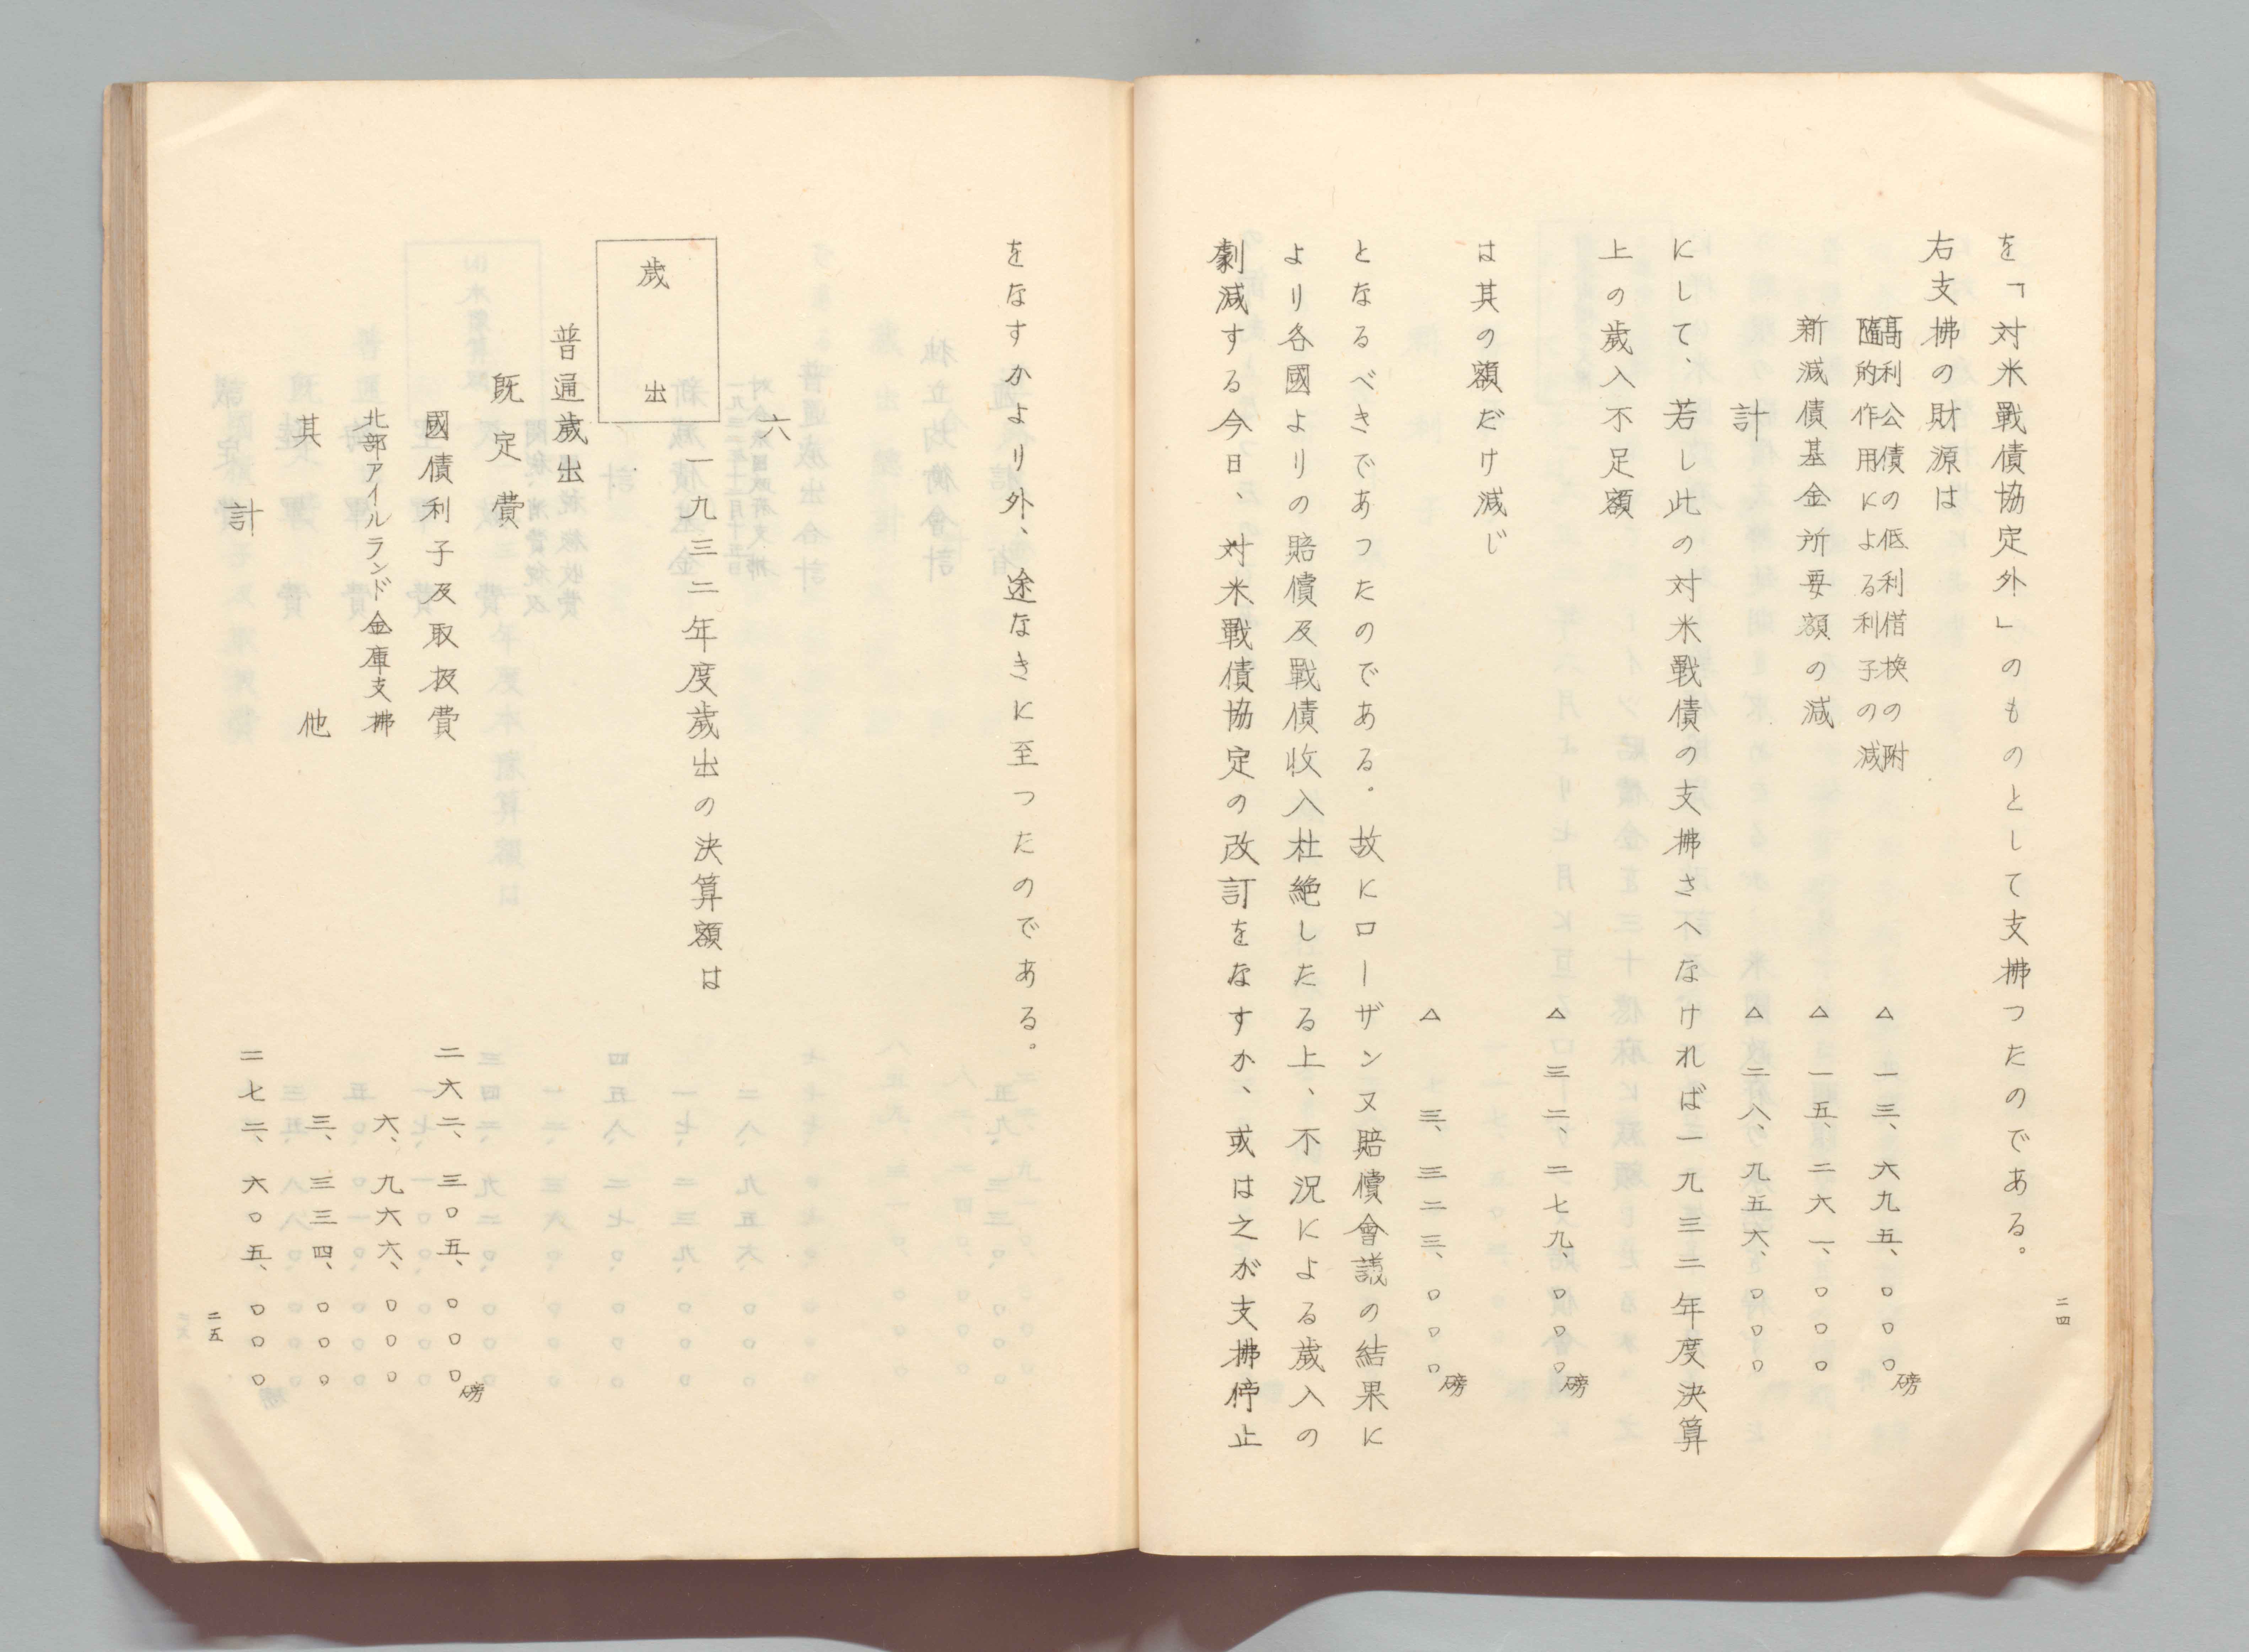 を「対米戰債協定外」のものとして支拂つたのである。
右支拂の財源は
高利公債の低利借換の附
隨的作用による利子の減
△一三、六九五、〇〇〇磅
新減債基金所要額の減
△一五、二六一、〇〇〇
計
△二八、九五六、〇〇〇
にして、若し此の対米戰債の支拂さへなければ一九三二年度決算
上の歲入不足額
△三二、二七九、〇〇〇磅
は其の額だけ減じ
△三、三二三、〇〇〇磅
となるべきであつたのである。故にローザンヌ賠償會議の結果に
より各國よりの賠償及戰債收入杜絶したる上、不況による歲入の
劇減する今日、対米戰債協定の改訂をなすか、或は之が支拂停止
二四
をなすかより外、途なきに至つたのである。
六
歲出
一九三二年度歲出の決算額は
普通歲出
既定費
國債利子及取扱費
二六二、三〇五、〇〇〇磅
北部アイルランド金庫支拂
六、九六六、〇〇〇
其他
三、三三四、〇〇〇
計
二七二、六〇五、〇〇〇
二五